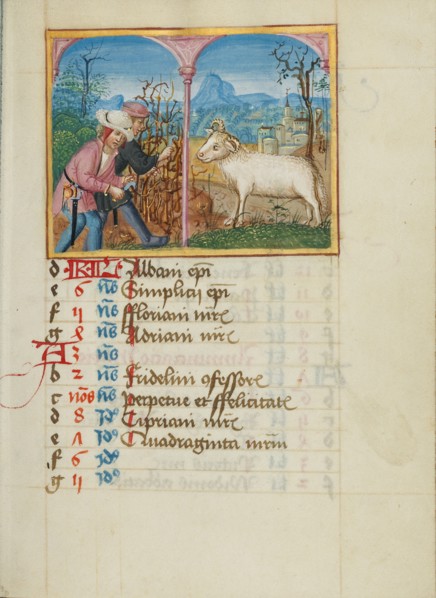 d KL Albani epi
e 6 ns Simplicii epi
f 4 ns Floriani mre
g 8 ns Adriani mre
A 3 ns
b 2 ns Fridelini ꝯfessore
c nos ns Perpetue et ffelicitate
d 8 Id9 Cipriani mre
e Λ Id9 Quadraginta mrm
f 6 Id9
g 4 Id9